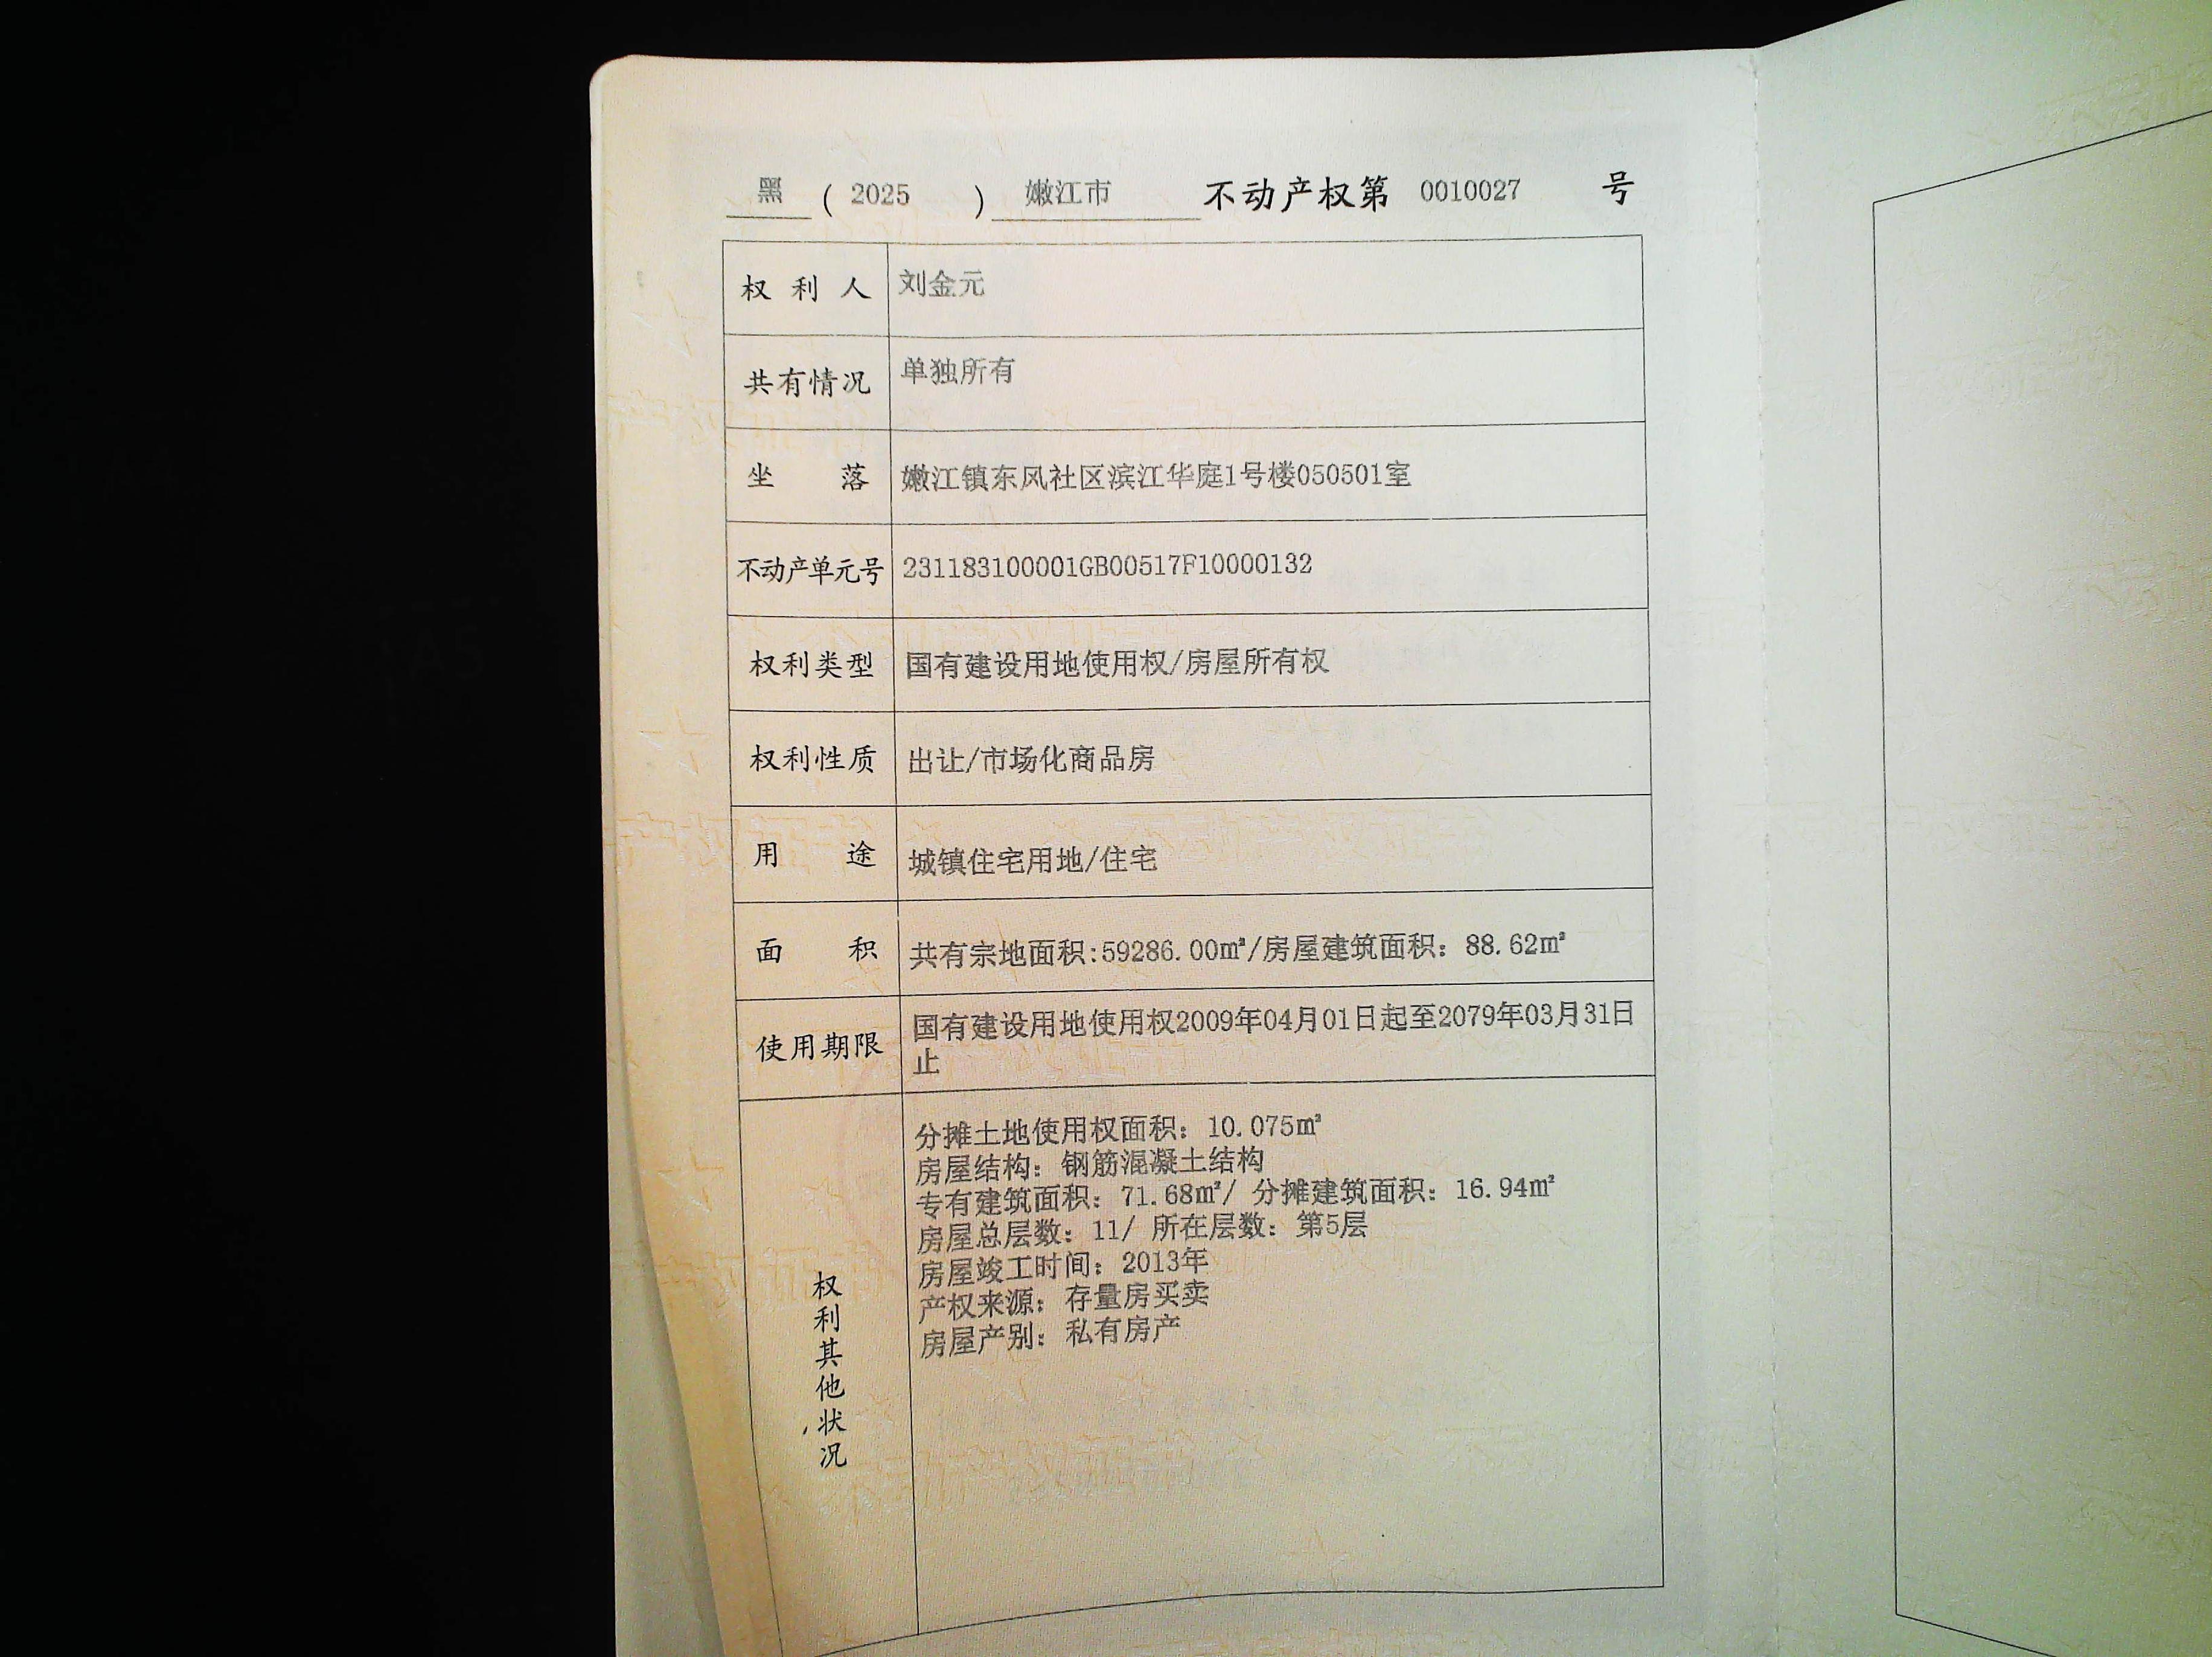 黑 ( 2025 ) 嫩江市 不动产权第 0010027 号
权利人 刘金元
共有情况 单独所有
坐落 嫩江镇东风社区滨江华庭1号楼050501室
不动产单元号 231183100001GB00517F10000132
权利类型 国有建设用地使用权/房屋所有权
权利性质 出让/市场化商品房
用途 城镇住宅用地/住宅
面积 共有宗地面积:59286.00㎡/房屋建筑面积: 88.62㎡
使用期限 国有建设用地使用权2009年04月01日起至2079年03月31日
止
权利其他状况
分摊土地使用权面积: 10.075㎡
房屋结构: 钢筋混凝土结构
专有建筑面积: 71.68㎡/ 分摊建筑面积: 16.94㎡
房屋总层数: 11/ 所在层数: 第5层
房屋竣工时间: 2013年
产权来源: 存量房买卖
房屋产别: 私有房产